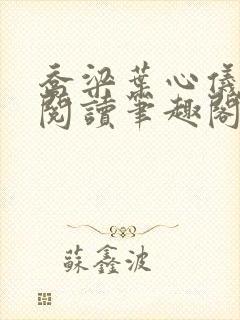 喬梁葉心儀
閱讀筆趣閣
蘇鑫波